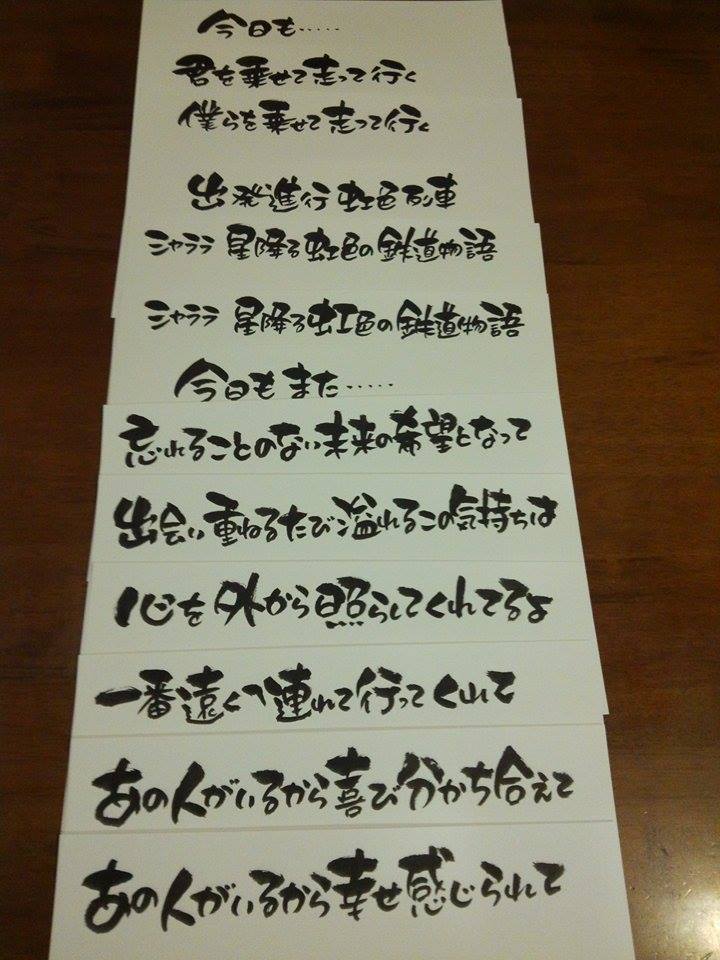 今日も・・・・・
君を乗せて走って行く
僕らを乗せて走って行く
出発進行 虹色列車
シャララ 星降る虹色の鉄道物語
シャララ 星降る虹色の鉄道物語
今日もまた・・・・・
忘れることのない未来の希望となって
出会い重ねるたび溢れるこの気持ちは
心を外から照らしてくれてるよ
一番遠くへ連れて行ってくれて
あの人がいるから喜び分かち合えて
あの人がいるから幸せ感じられて